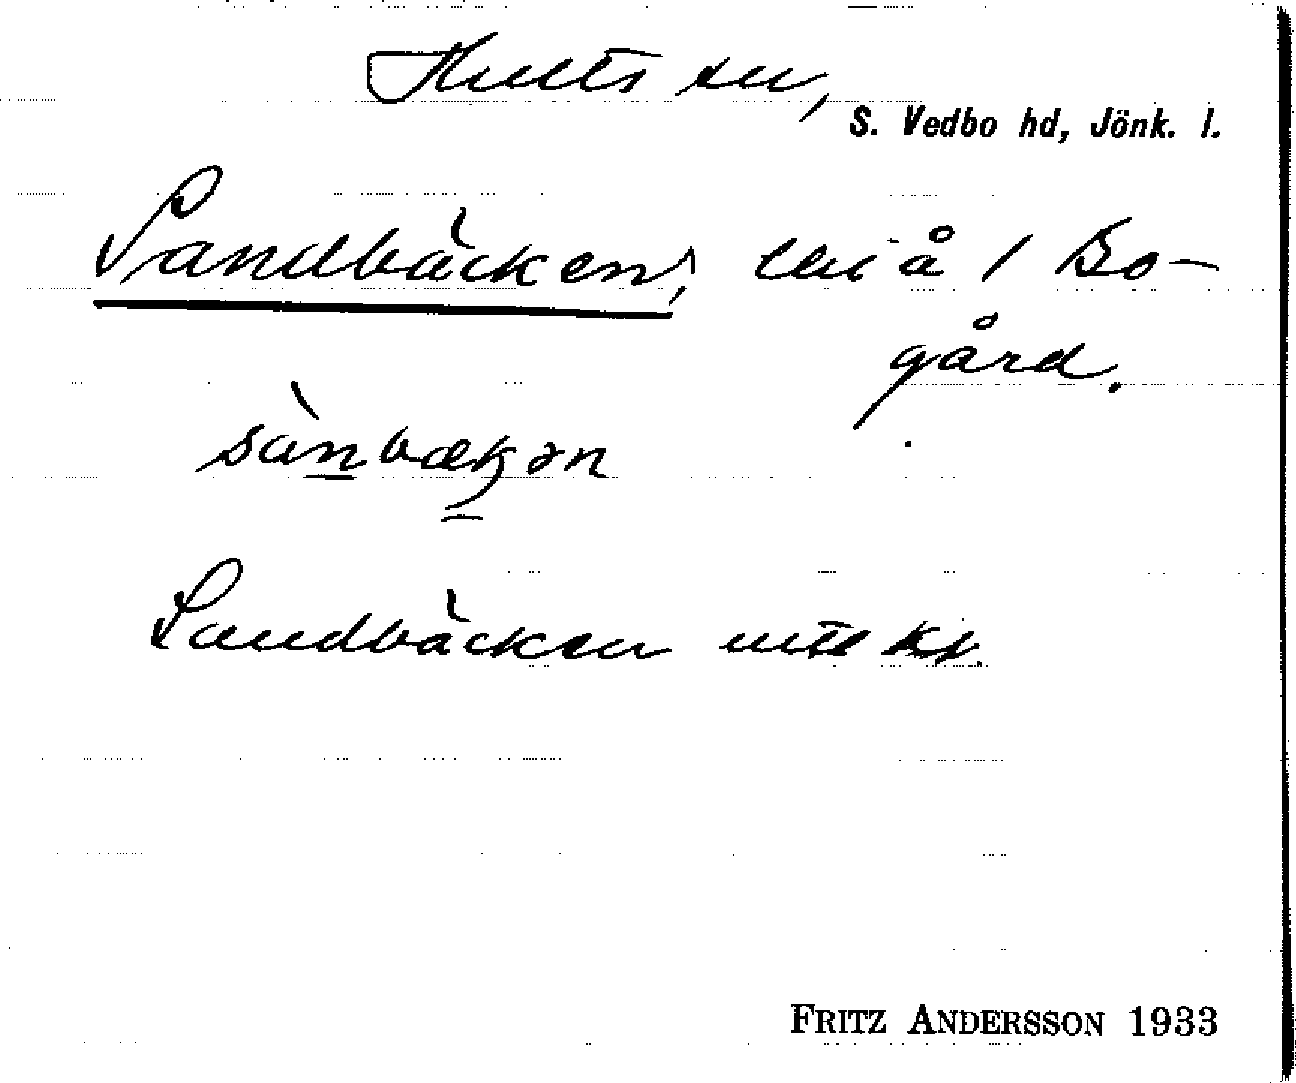 Hults sn,
S. Vedbo hd, Jönk. l.
Sandbäcken, liti å / Bo-
gård.
sànbækən
Sandbäcken mtl kt.
FRITZ ANDERSSON 1933